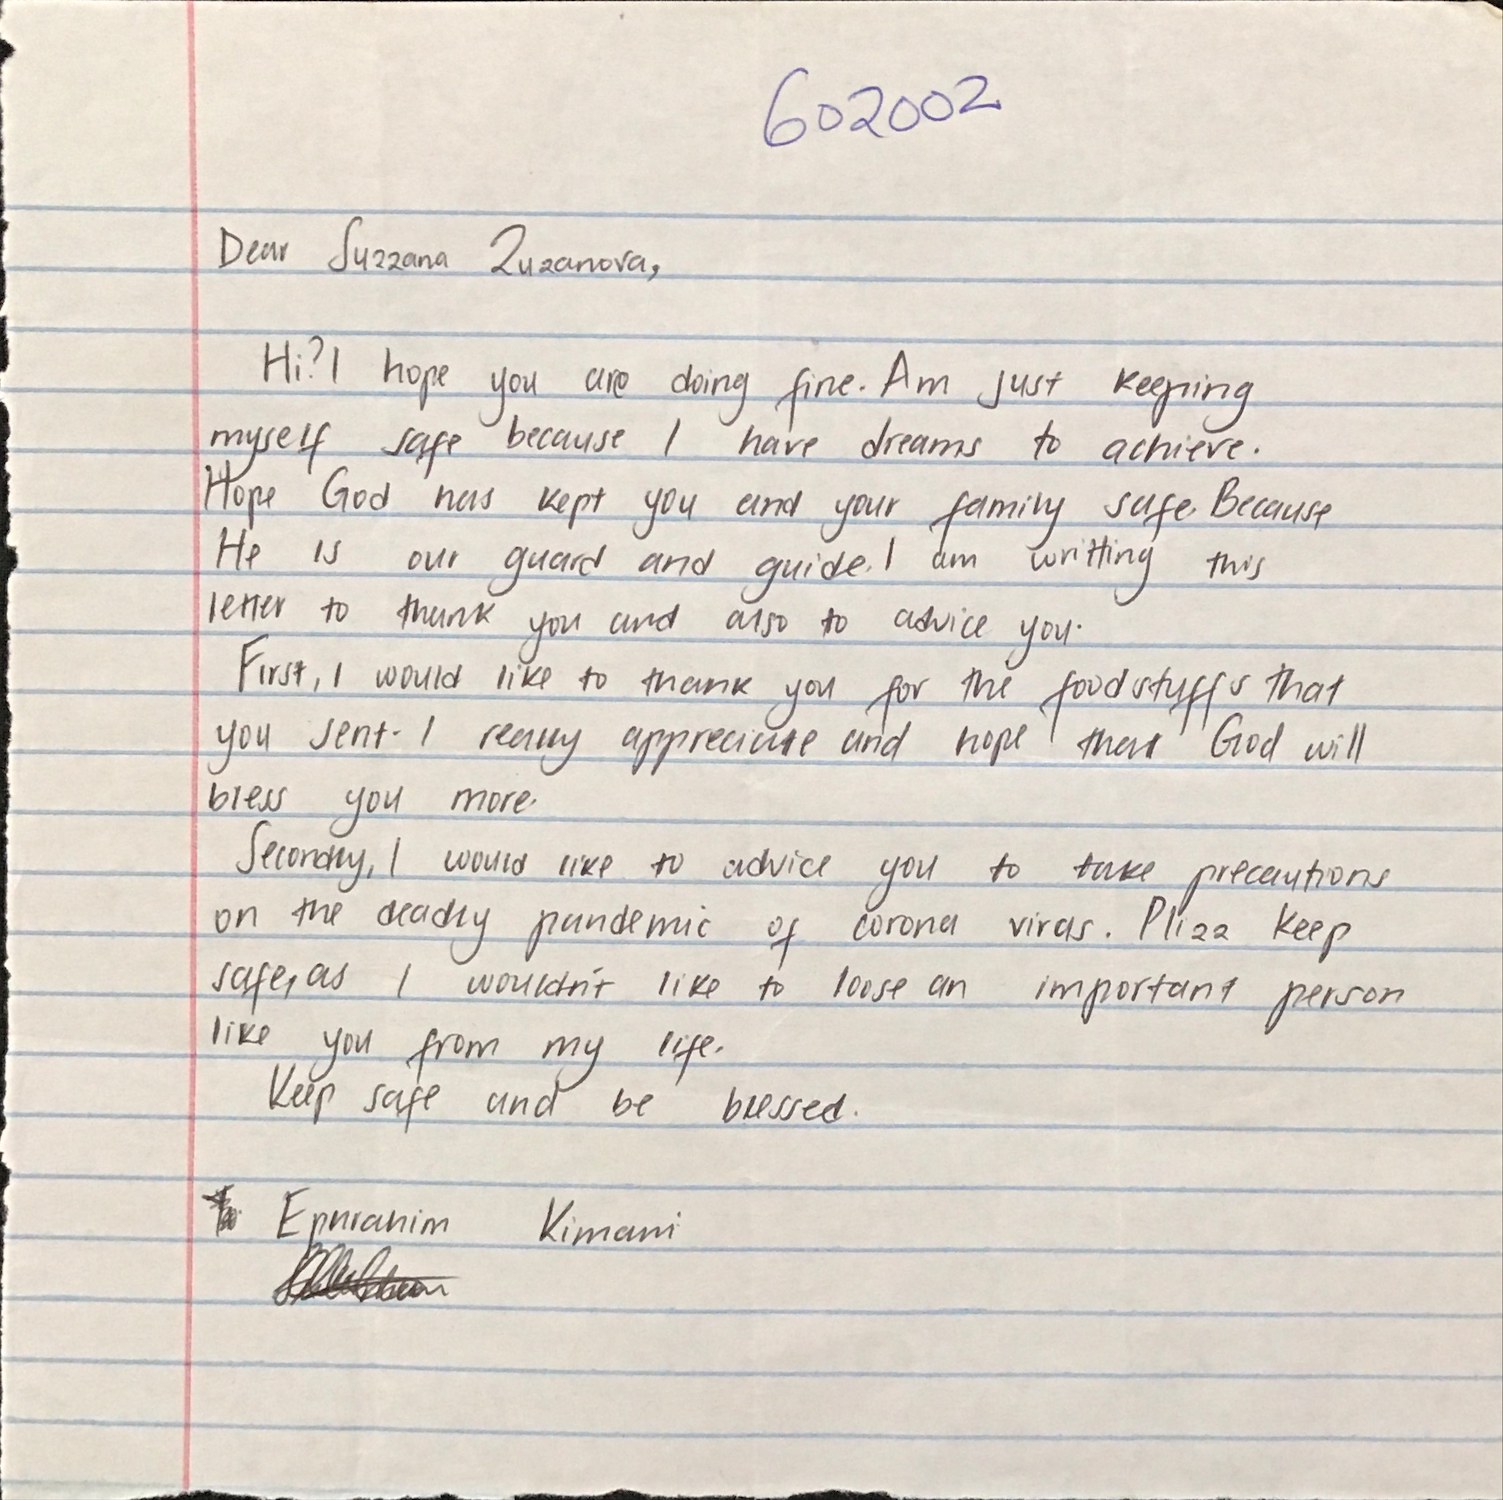 602002
Dear Suzzana Zuzanova,
Hi? I hope you are doing fine. Am just keeping
myself safe because I have dreams to achieve.
Hope God has kept you and your family safe. Because
He is our guard and guide. I am writting this
letter to thank you and also to advice you.
First, I would like to thank you for the foodstuffs that
you sent. I really appreciate and hope that God will
bless you more.
Secondly, I would like to advice you to take precautions
on the deadly pandemic of corona virus. Plizz keep
safe, as I wouldn't like to loose an important person
like you from my life.
Keep safe and be blessed.
Ephrahim Kimani